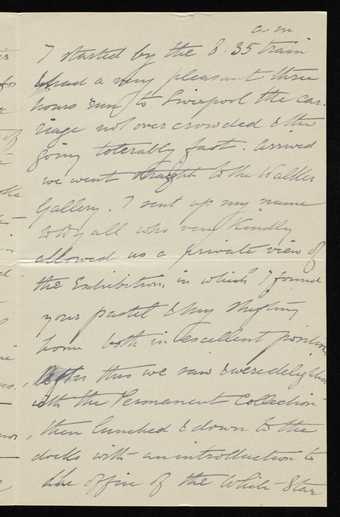 a.m
I started by the 8.35 train
& had a very pleasant three
hours run to Liverpool the car-
riage not over crowded & the
going tolerably fast. Arrived
we went straight to the Walker
Gallery. I sent up my name
to Dyall who very kindly
allowed us a private view of
the Exhibition, in which I found
your pastel & my
home both in excellent position
after this we saw & were delighted
with the Permanent Collection
then lunched & down to the
docks with an introduction to
the office of the White Star